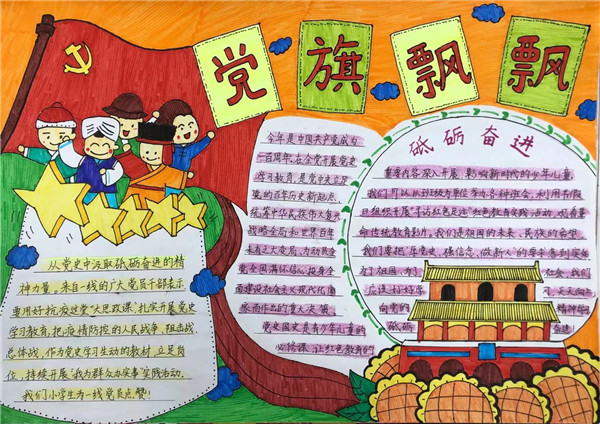 党旗飘飘
从党史中汲取砥砺奋进的精
神力量,来自一线的广大党员干部表示
要用好抗疫这堂"大思政课",扎实开展党史
学习教育,把疫情防控的人民战争、阻击战、
总体战,作为党史学习生动的教材,立足岗
位,持续开展"我为群众办实事"实践活动。
我们小学生为一线党员点赞!
今年是中国共产党成立
一百周年,在全党开展党史
学习教育,是党中央立足
党的百年历史新起点、
统筹中华民族伟大复兴
战略全局和世界百年
未有之大变局、为动员全
党全国满怀信心投身全
面建设社会主义现代化国
家而作出的重大决策。
党史国史是青少年儿童的
必修课,让红色教育的
砥砺奋进
我们可以从班级为单位举办各种班会,利用节假
日组织开展"寻访红色足迹"红色教育实践活动,观看革
命传统教育影片,我们是祖国的未来,民族的希望。
我们要把"学党史、强信念、做新人"的
为了祖国,为了
社会,我们
应该
天天向上
向党的
精神
砥砺
奋进